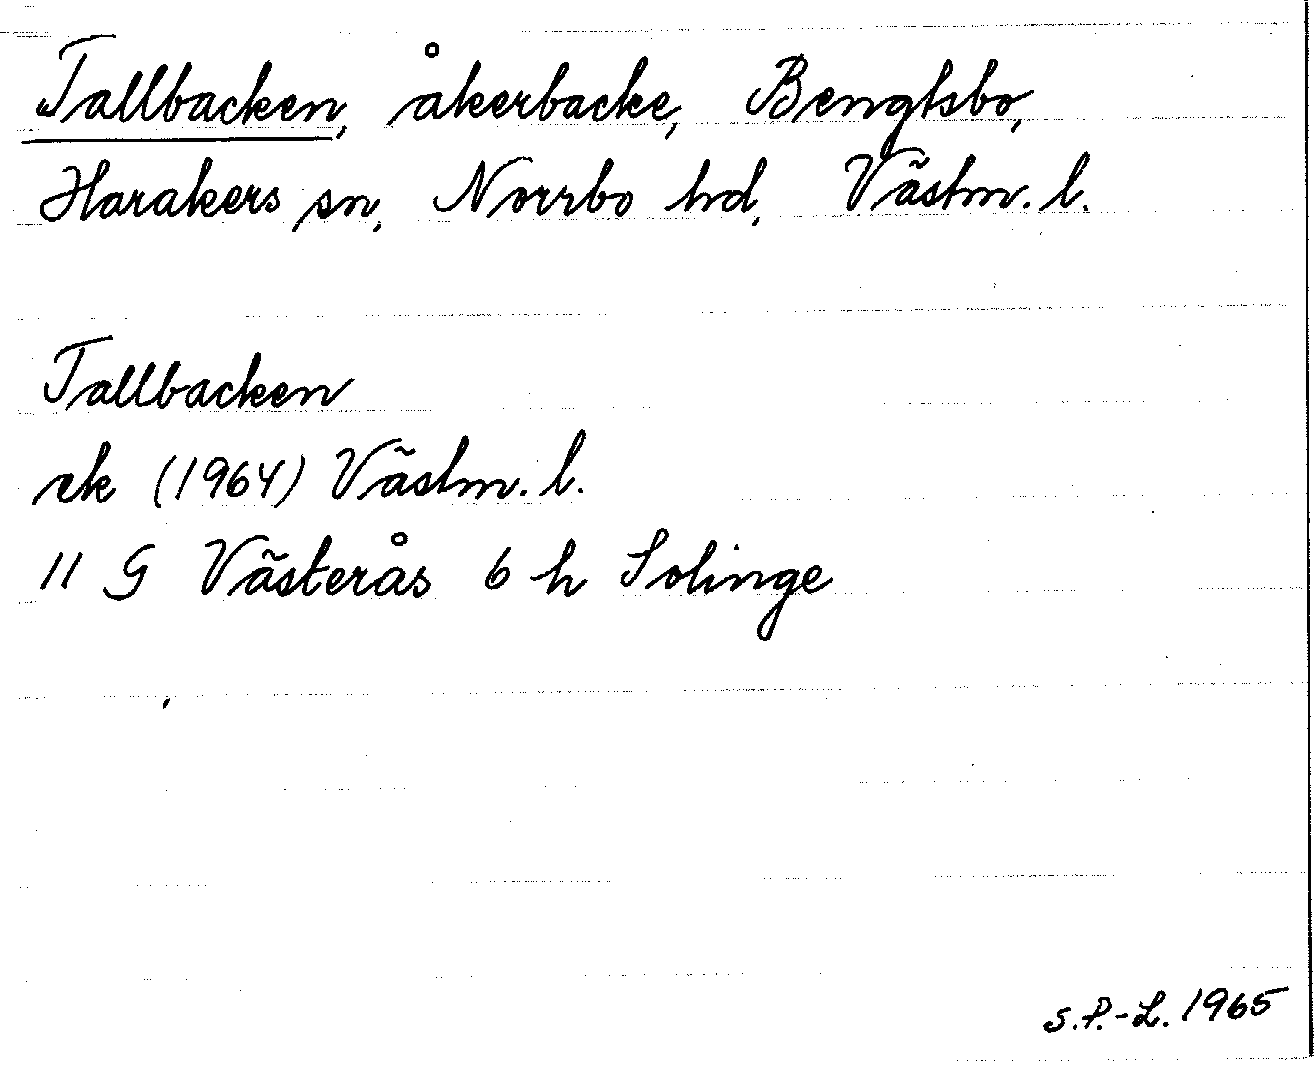 Tallbacken, åkerbacke, Bengtsbo,
Harakers sn, Norrbo hd, Västm. l.
Tallbacken
ek (1964) Västm. l.
11 G Västerås 6 h Solinge
S.P.-L. 1965